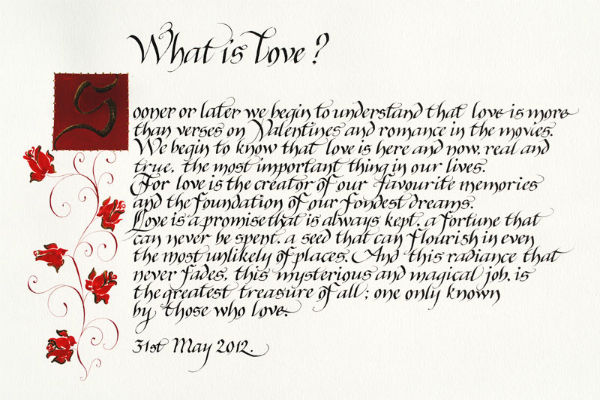 What is Love?
Sooner or later we begin to understand that love is more
than verses on Valentines and romance in the movies.
We begin to know that love is here and now, real and
true, the most important thing in our lives.
For love is the creator of our favourite memories
and the foundation of our fondest dreams.
Love is a promise that is always kept, a fortune that
can never be spent, a seed that can flourish in even
the most unlikely of places. And this radiance that
never fades, this mysterious and magical joy, is
the greatest treasure of all; one only known
by those who love.
31st May 2012.